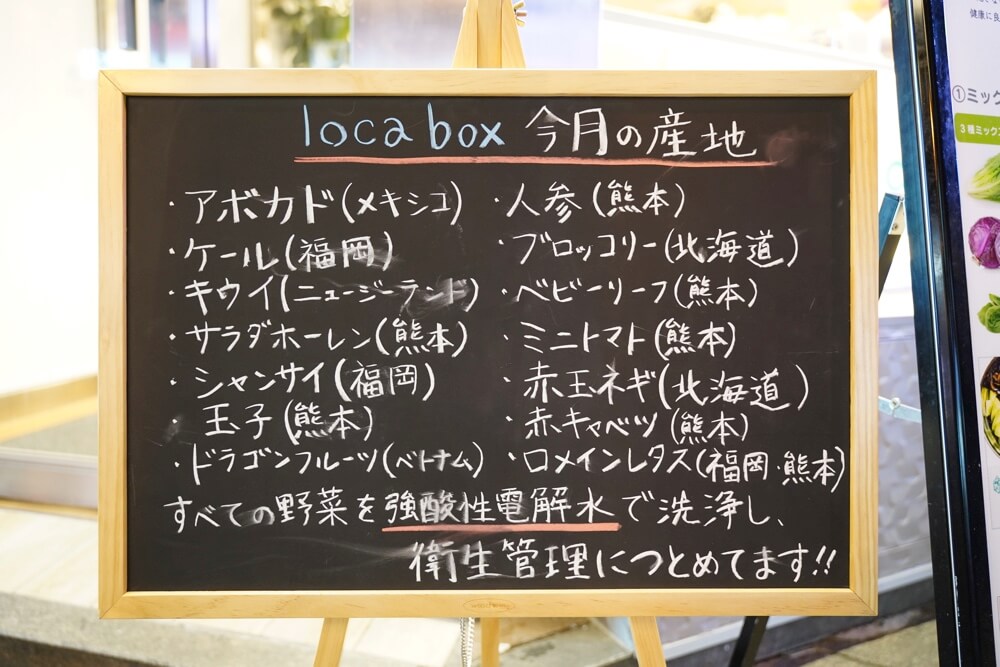 loca box 今月の産地
・アボカド(メキシコ)
・ケール(福岡)
・キウイ(ニュージーランド)
・サラダホーレン(熊本)
・シャンサイ(福岡)
玉子(熊本)
・ドラゴンフルーツ(ベトナム)
・人参(熊本)
・ブロッコリー(北海道)
・ベビーリーフ(熊本)
・ミニトマト(熊本)
・赤玉ネギ(北海道)
・赤キャベツ(熊本)
・ロメインレタス(福岡・熊本)
すべての野菜を強酸性電解水で洗浄し、
衛生管理につとめてます!!
健康に良
①ミック
3種ミックス